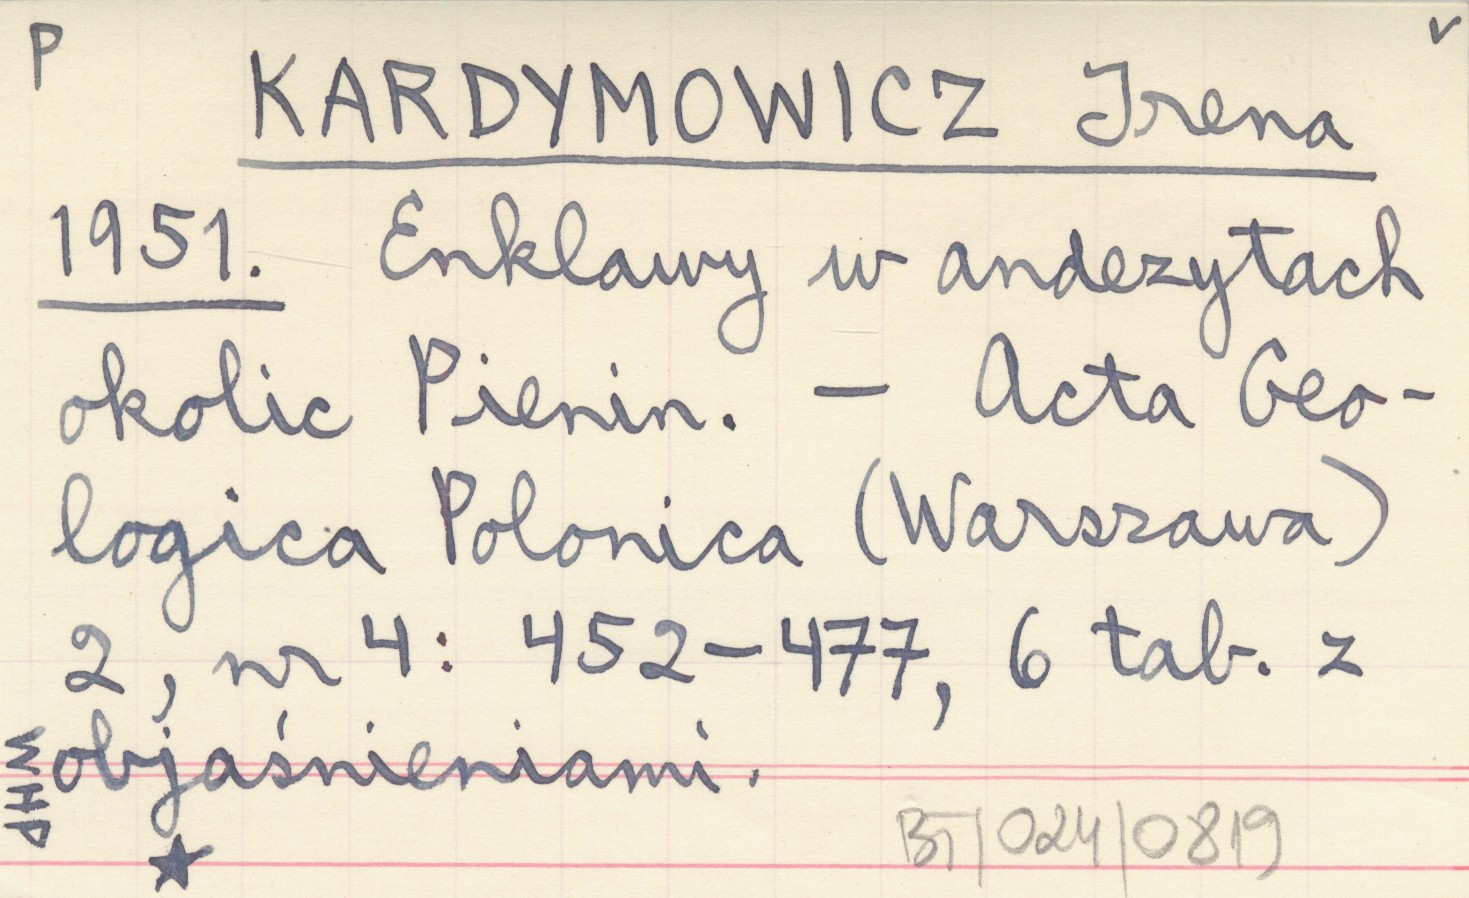 P
v
KARDYMOWICZ Irena
1951. Enklawy w andezytach
okolic Pienin. — Acta Geo-
logica Polonica (Warszawa)
2, nr 4: 452–477, 6 tab. z
objaśnieniami.
WHP
★
BJ/024/0819